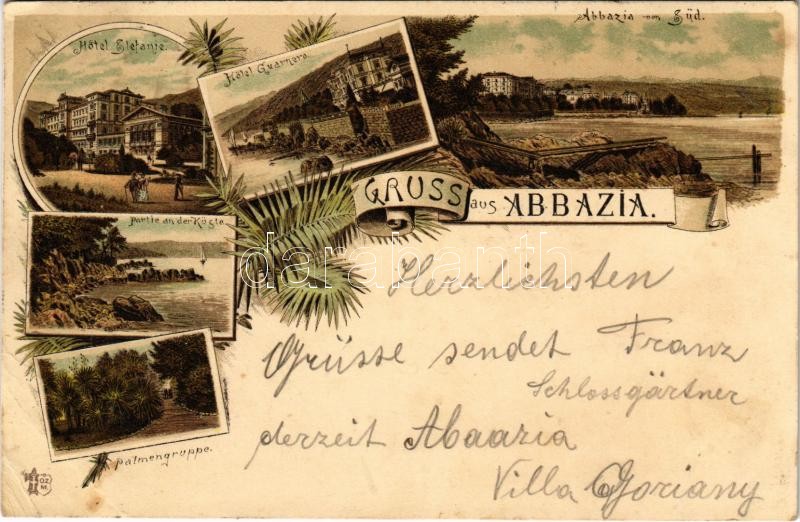 Hôtel Stefanie.
Hôtel Quarnero.
Abbazia von Süd.
GRUSS aus ABBAZIA.
Partie an der Küste.
Palmengruppe.
Herzlichsten
Grüsse sendet Franz
Schlossgärtner
derzeit Abaazia
Villa Goriany
darabanth
OZ
M.